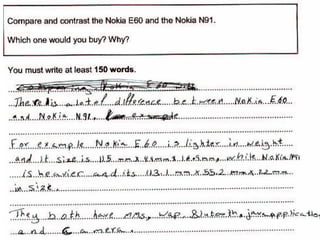 Compare and contrast the Nokia E60 and the Nokia N91.
Which one would you buy? Why?
You must write at least 150 words.
There is a lot of difference between Nokia E60
and Nokia N91,
For example Nokia E60 is lighter in weight
and It size is 115 mm x mm x mm, while Nokia N91
is heavier and its 113.1 mm x 55.2 mm x 22 mm
in size.
They both have MMs, wap, Blutooth, java application
and Camera.